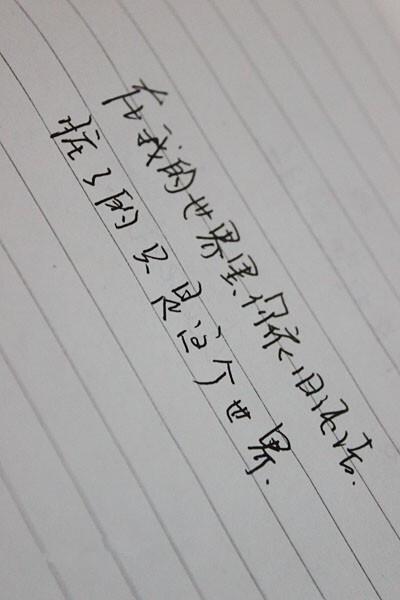 在我的世界里你依旧纯洁.
脏了的只是这个世界.